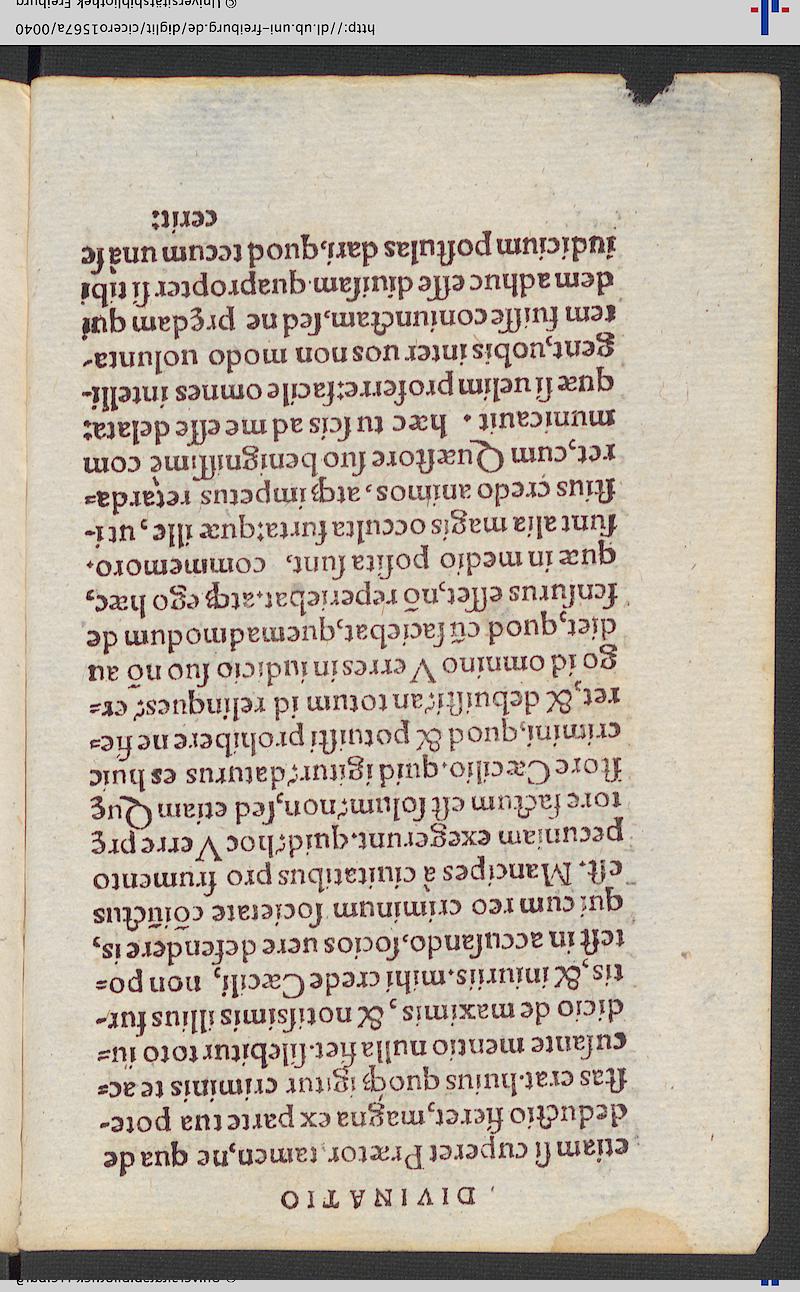 DIVINATIO
etiam ſi cuperet Prætor, tamen, ne qua de
deductio fieret, magna ex parte tua pote-
ſtas erat. huius quoqꝫ igitur criminis te ac=
cuſante mentio nulla fiet. ſilebitur toto iu=
dicio de maximis, & notiſsimis illius fur-
tis, & iniuriis. mihi crede Cæcili, non po=
teſt in accuſando, ſocios uere defendere is,
qui cum reo criminum ſocietate cõiũctus
eſt. Mancipes à ciuitatibus pro frumento
pecuniam exegerunt. quid? hoc Verre prę
tore factum eſt ſolum? non, ſed etiam Quę
ſtore Cæcilio. quid igitur? daturus es huic
crimini, quod & potuiſti prohibere ne fie=
ret, & debuiſti? an totum id relinques? er=
go id omnino Verres in iudicio ſuo nõ au
diet, quod cũ faciebat, quemadmodum de
fenſurus eſſet, nõ reperiebat. atqꝫ ego hæc,
quæ in medio poſita ſunt, commemoro.
ſunt alia magis occulta furta: quæ ille, uti-
ſtius credo animos, atqꝫ impetus retarda=
ret, cum Quæſtore ſuo benigniſſime com
municauit. hæc tu ſcis ad me eſſe delata:
quæ ſi uelim proferre: facile omnes intelli-
gent, uobis inter uos non modo uolunta-
tem fuiſſe coniunctam, ſed ne prędam qui
dem adhuc eſſe diuiſam. quapropter ſi tibi
iudicium poſtulas dari, quod tecum unà fe
cerit:
http://dl.ub.uni-freiburg.de/diglit/cicero1567a/0040
© Universitätsbibliothek Freiburg